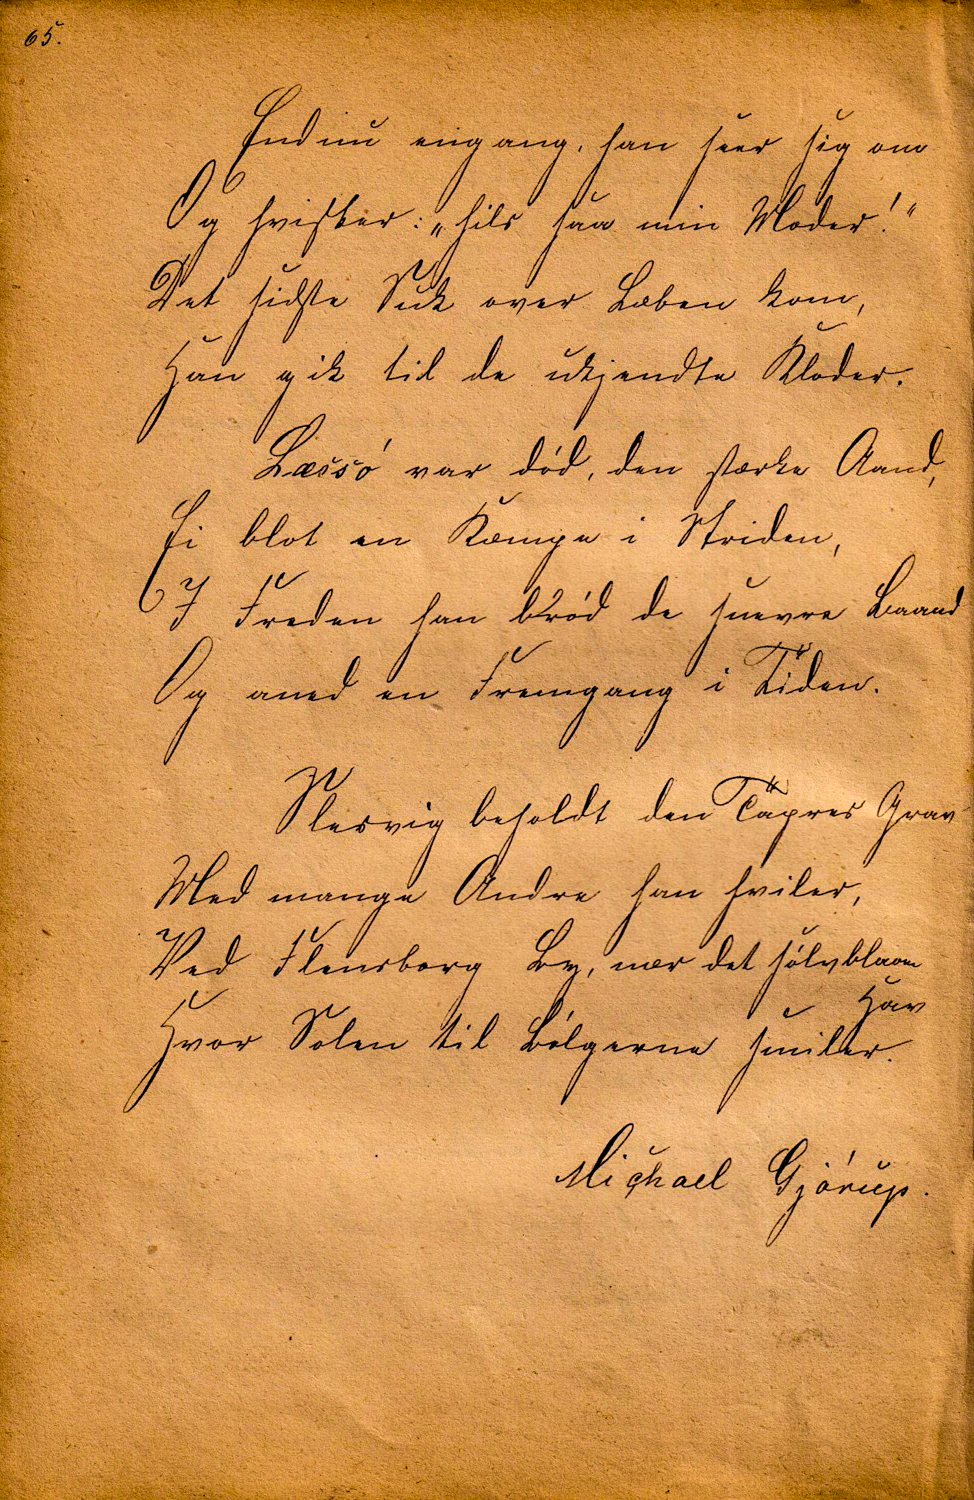 65.
Endnu eengang, han seer sig om
Og hvisker: „hils saa min Moder!“
Det sidste Suk over Læben kom,
Han gik til de ukjendte Kloder.
Læssó var dód, den stærke Aand,
Ei blot en Kæmpe i Striden,
I Freden han bród de snevre Baand
Og aned en Fremgang i Tiden.
Slesvig beholdt den Tapres Grav
Med mange Andre han hviler,
Ved Flensborg By, nær det sólvblaae
Hav
Hvor Solen til Bólgerne smiler.
Michael Gjórup.